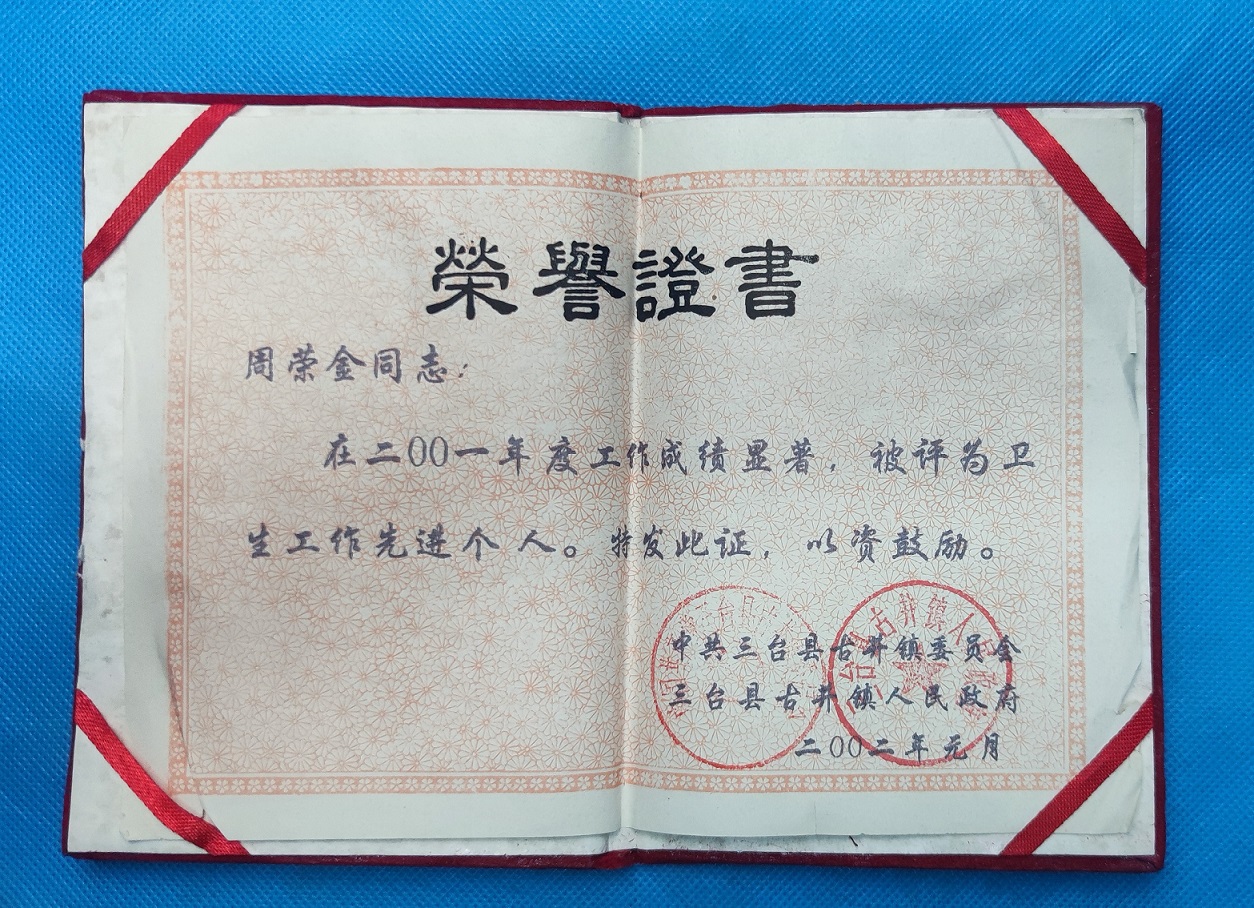 榮譽證書
周荣金同志：
在二00一年度工作成绩显著，被评为卫
生工作先进个人。特发此证，以资鼓励。
中共三台县古井镇委员会
三台县古井镇人民政府
二00二年元月